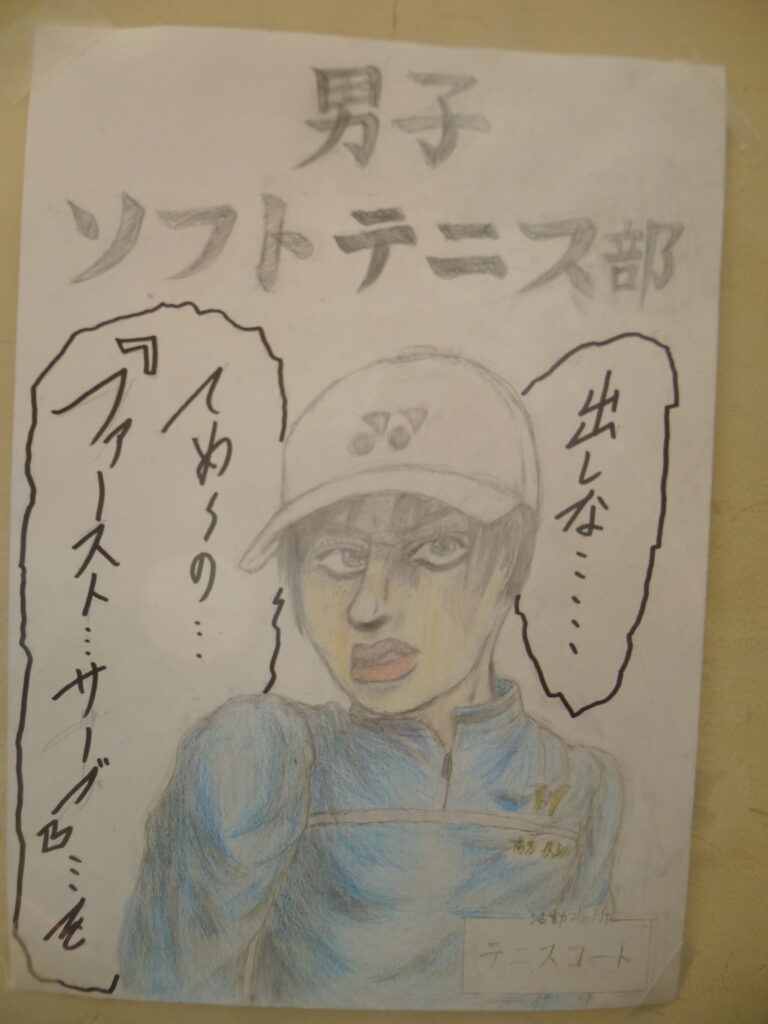 男子
ソフトテニス部
出しな……
てめ～の…
『ファースト…サーブ』…を
活動場所
テニスコート